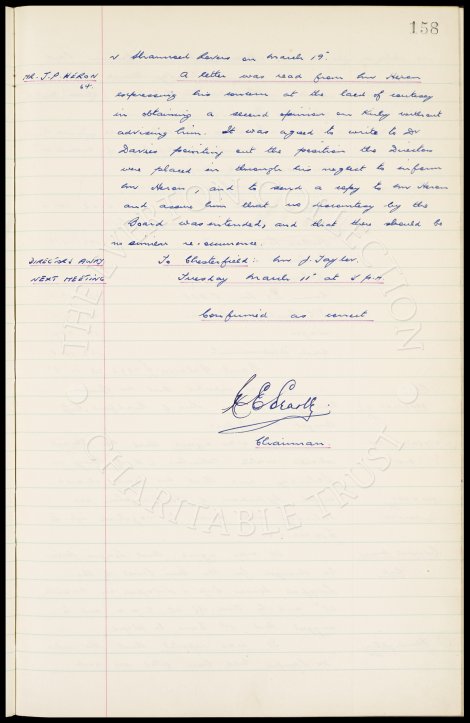 158
v Shamrock Rovers on March 19th
MR. J.P. HERON
64.
A letter was read from Mr Heron
expressing his concern at the lack of courtesy
in obtaining a second opinion on Kirby without
advising him. It was agreed to write to Dr
Davies pointing out the position the Directors
were placed in through his neglect to inform
Mr Heron, and to send a copy to Mr Heron
and assure him that no discourtesy by the
Board was intended, and that there should be
no similar re-occurrence.
DIRECTORS AWAY
To Chesterfield:- Mr J. Taylor.
NEXT MEETING
Tuesday March 11th at 5 P.M.
Confirmed as correct
Chairman.
THE EVERTON COLLECTION
CHARITABLE TRUST